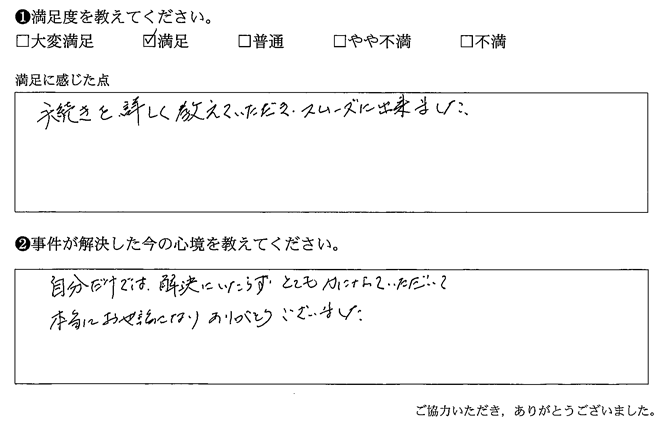 ❶満足度を教えてください。
□大変満足 ☑満足 □普通 □やや不満 □不満
満足に感じた点
手続きを詳しく教えていただき、スムーズに出来ました。
❷事件が解決した今の心境を教えてください。
自分だけでは、解決にいたらず とても力になっていただいて
本当にお世話になり ありがとう ございました。
ご協力いただき，ありがとうございました。